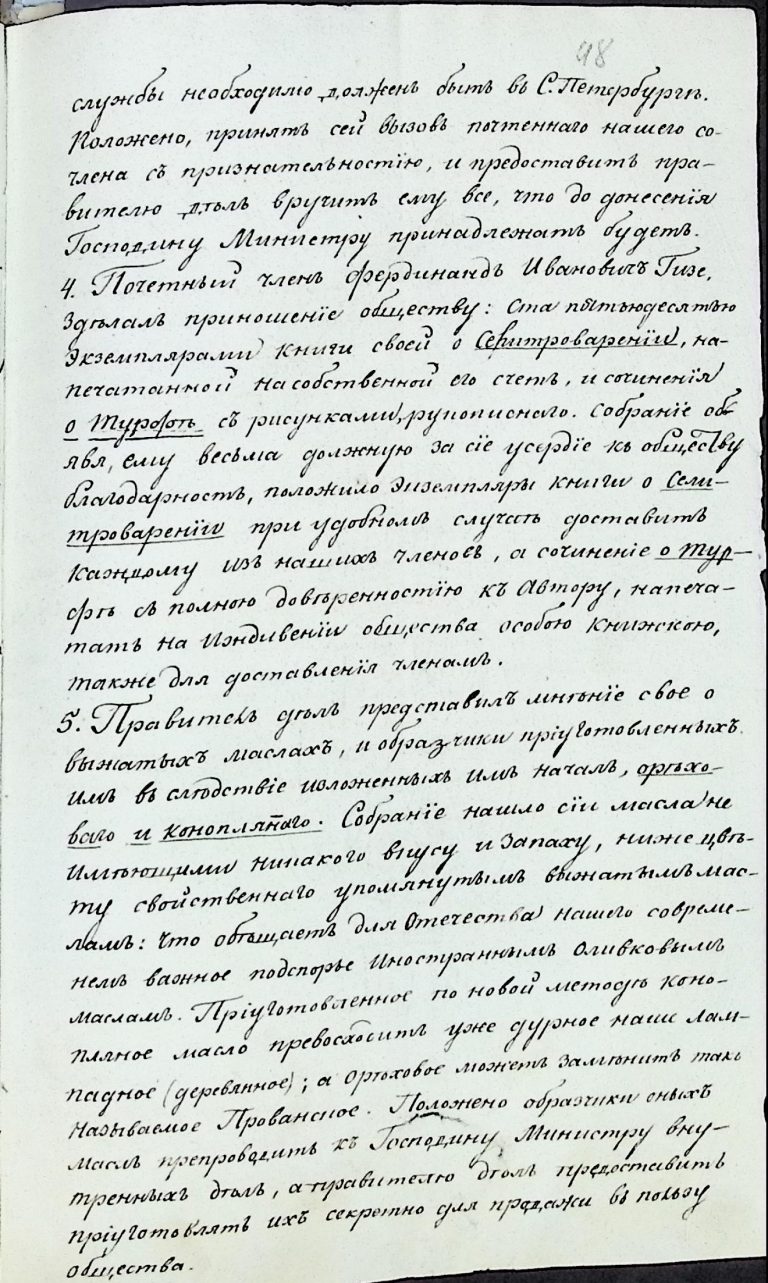 48
службы необходимо должень быть въ С. Петербургѣ.
Положено, принять сей вызовъ почтеннаго нашего со-
члена съ признательностію, и предоставить пра-
вителю дѣлъ вручить ему все, что до донесенія
Господину Министру принадлежать будетъ.
4. Почетный членъ Фердинандъ Ивановичъ Гизе,
Здѣлалъ приношеніе обществу: Ста пятьюдесятью
Экземплярами книги своей о Селитровареніи, на-
печатанной на собственной его счетъ, и сочиненія
о Турфѣ съ рисунками, рукописнаго. Собраніе объ
явя, ему весьма должную за сіе усердіе къ обществу
благодарность, положило Экземпляры книги о Сели-
тровареніи при удобномъ случаѣ доставить
каждому изъ нашихъ членовъ, а сочиненіе о Тур-
фѣ съ полною довѣренностію къ Автору, напеча-
тать на Иждивеніи общества особою книжкою,
также для доставленія членамъ.
5. Правитель дѣлъ представилъ мнѣніе свое о
выжатыхъ маслахъ, и образчики пріуготовленныхъ
имъ въ слѣдствіе изложенныхъ имъ началъ, орѣхо-
ваго и коноплянаго. Собраніе нашло сіи масла не
имѣющими никакого вкусу и Запаху, ниже цвѣ-
ту свойственнаго упомянутымъ выжатымъ мас-
ламъ: Что обѣщаетъ для Отечества нашего совреме-
немъ важное подспорье Иностраннымъ Оливковымъ
масламъ. Пріуготовленное по новой методѣ коно-
пляное масло превосходитъ уже дурное наше Лам-
падное (деревянное); а Орѣховое можетъ Замѣнить такъ
называемое Прованское. Положено образчики оныхъ
маслъ препроводить къ Господину Министру вну-
тренныхъ дѣлъ, а правителю дѣлъ предоставить
пріуготовлять ихъ секретно для продажи въ пользу
Общества.